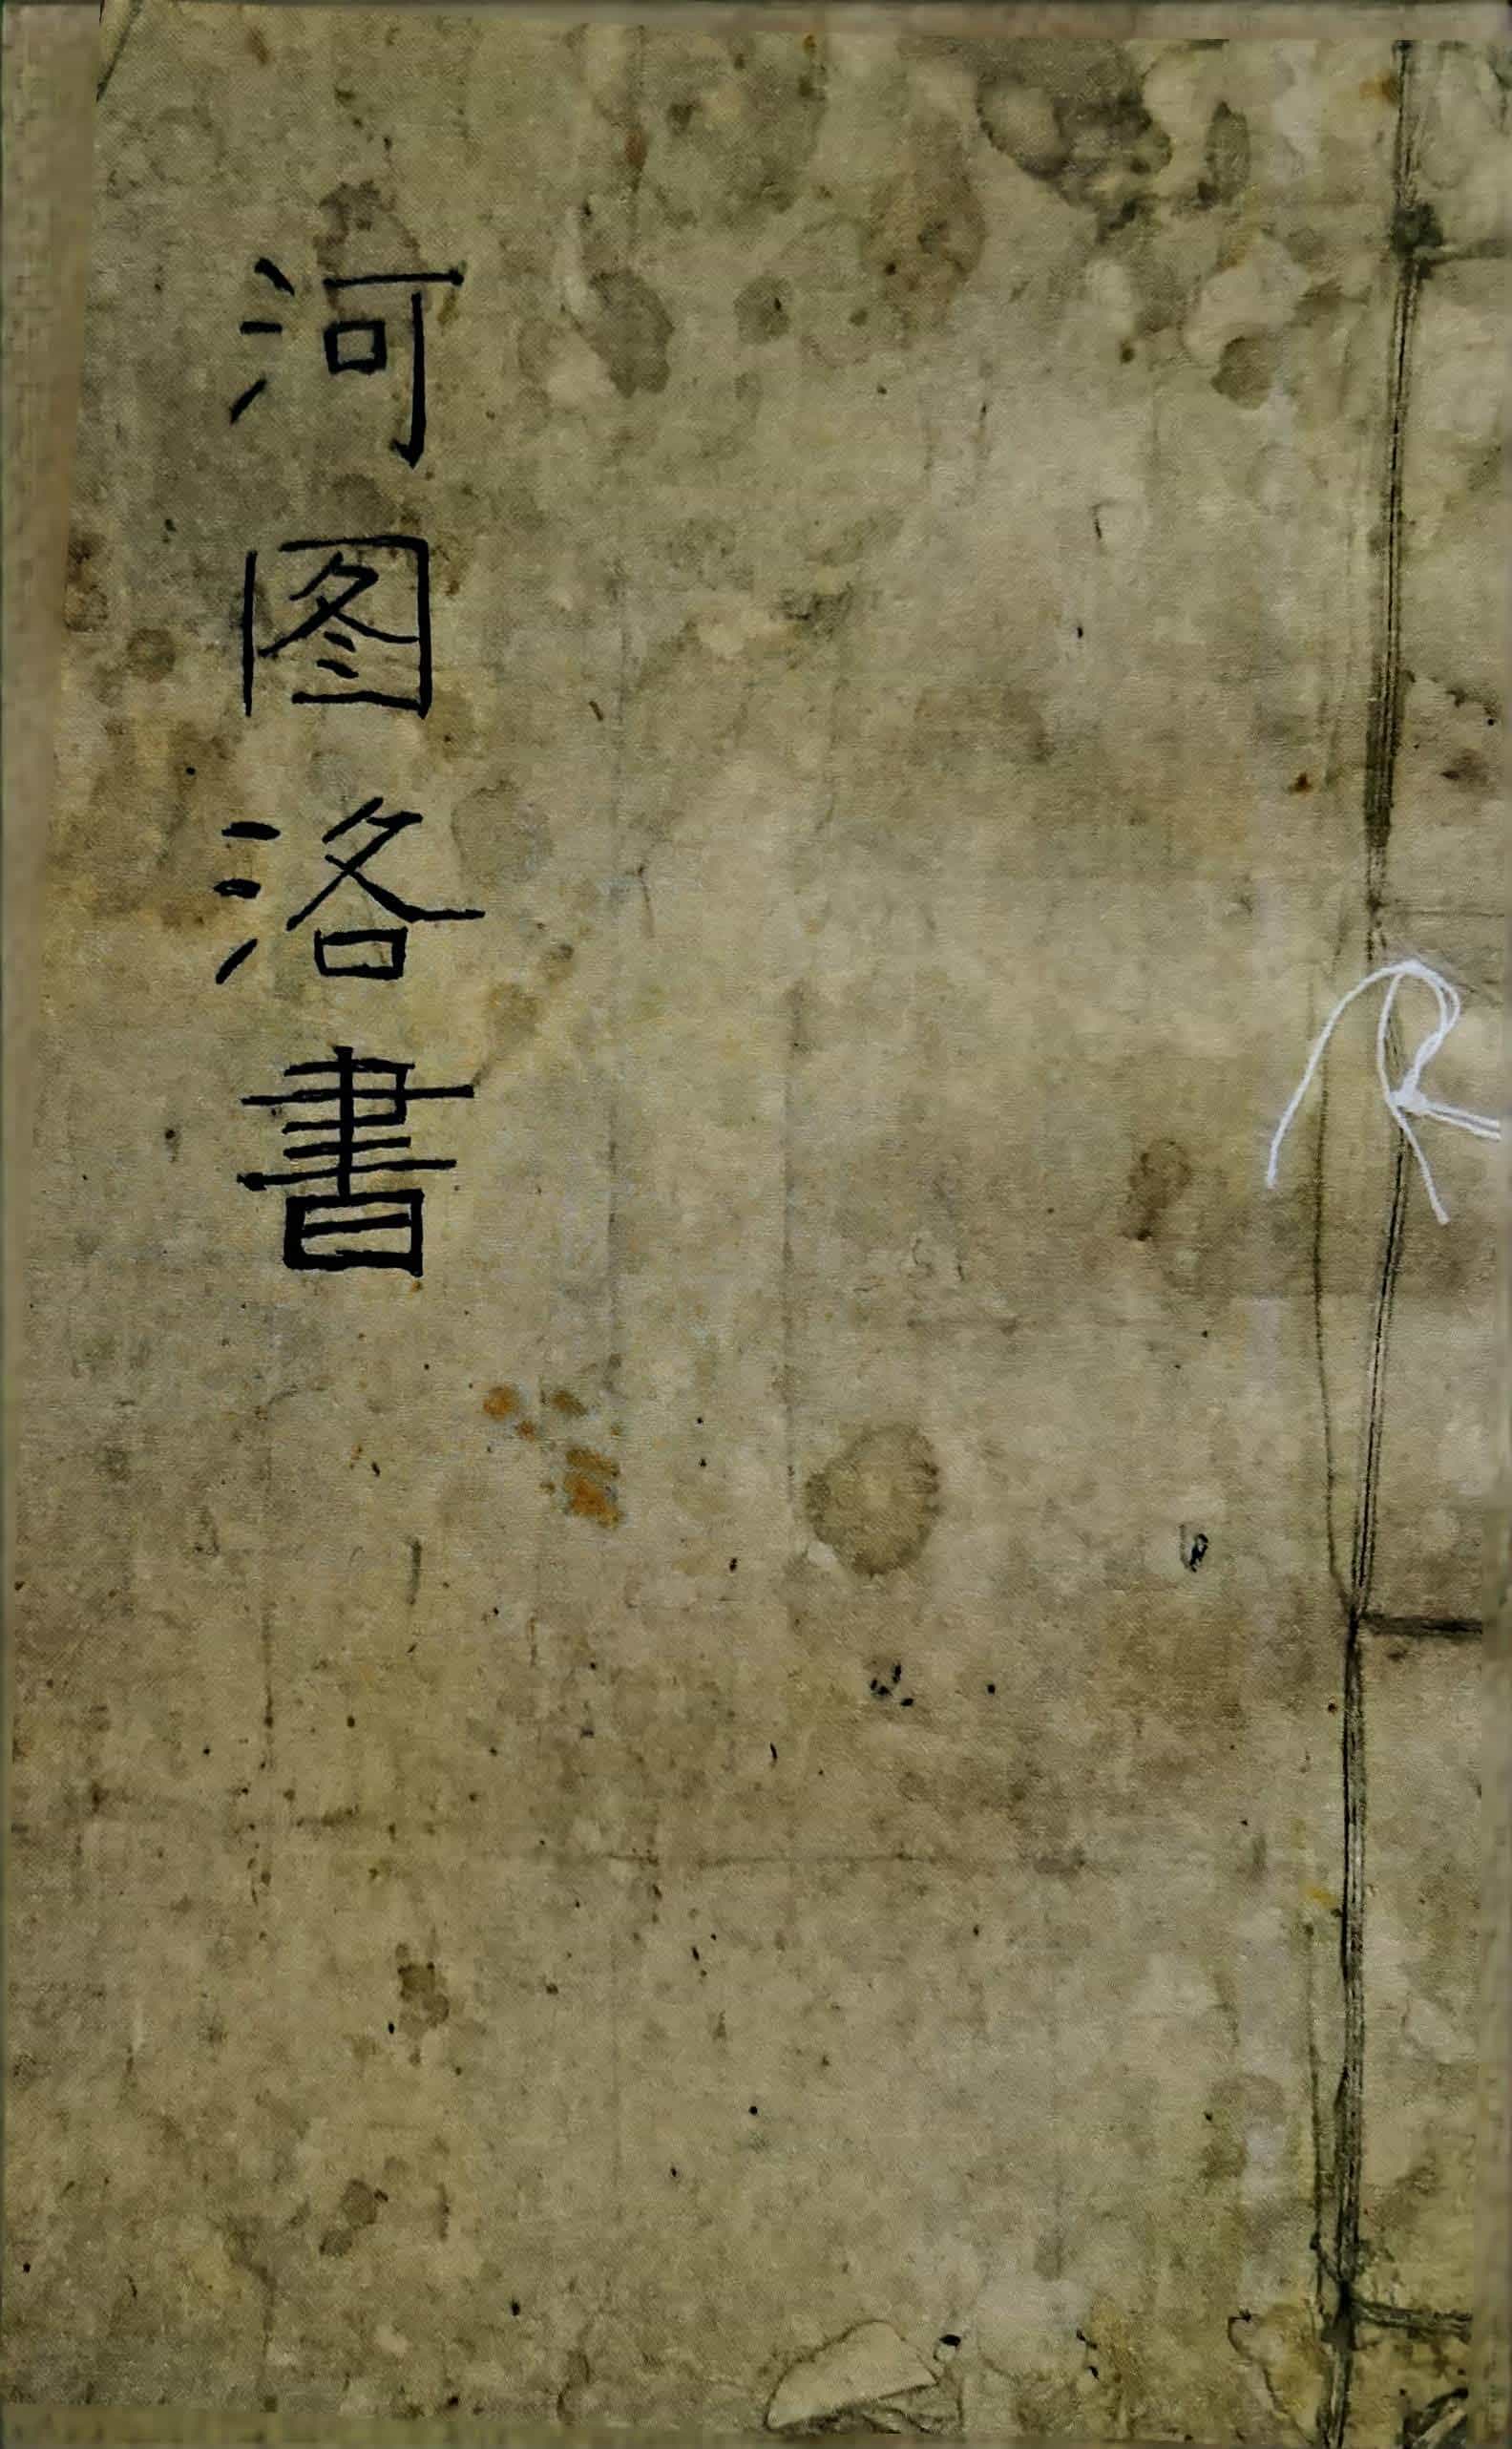 河图洛書